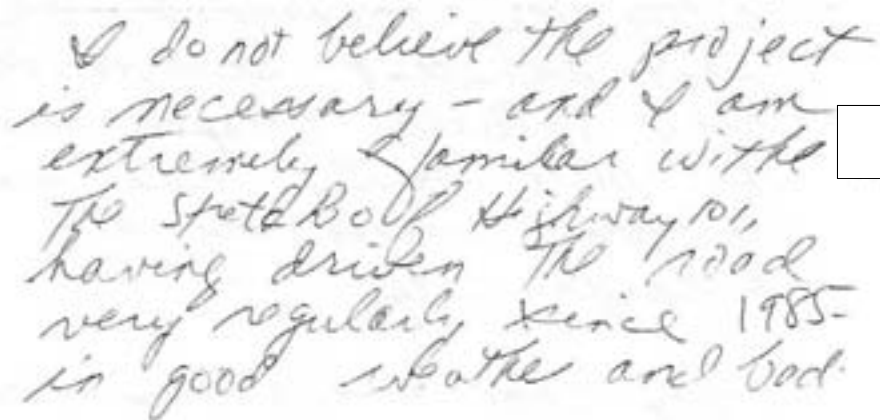 I do not believe the project
is necessary - and I am
extremely familiar with
the stretch of Highway 101,
having driven the road
very regularly since 1985
in good weather and bad.